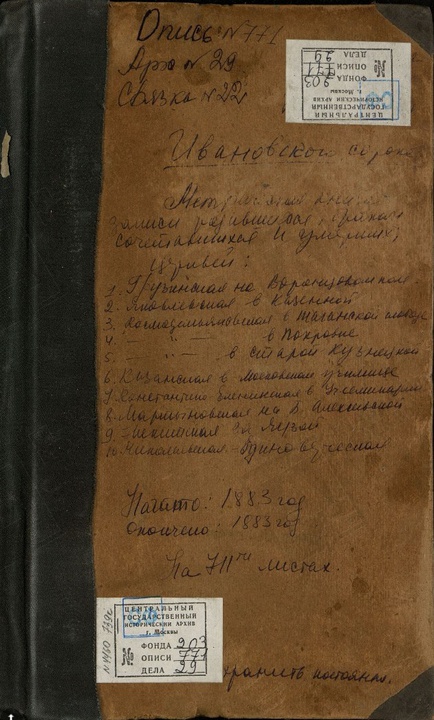 Опись № 771
Арх № 29
Связка № 22
ЦЕНТРАЛЬНЫЙ
ГОСУДАРСТВЕННЫЙ
ИСТОРИЧЕСКИЙ АРХИВ
г. Москвы
ФОНДА 203
ОПИСИ 771
ДЕЛА 29
Ивановского сорока
книга
записи родившихся
сочетавшихся и умерших,
церквей:
1. Грузинская на Воронцовом поле
2. Яковлевская в Казенной
3. Космодамиановская в Таганской слободе
4. — " — в Покровке
5. — " — в старой Кузнецкой
6. Казанская в Московском училище
7. Константино Еленинская в семинарии
8. Мартыновская на Б. Алексеевской
9. за Яузой
10. Николаевская
Начато: 1883 год
окончено: 1883 год
На 711ти листах.
ЦЕНТРАЛЬНЫЙ
ГОСУДАРСТВЕННЫЙ
ИСТОРИЧЕСКИЙ АРХИВ
г. Москвы
ФОНДА 203
ОПИСИ 771
ДЕЛА 29
хранить постоянно.